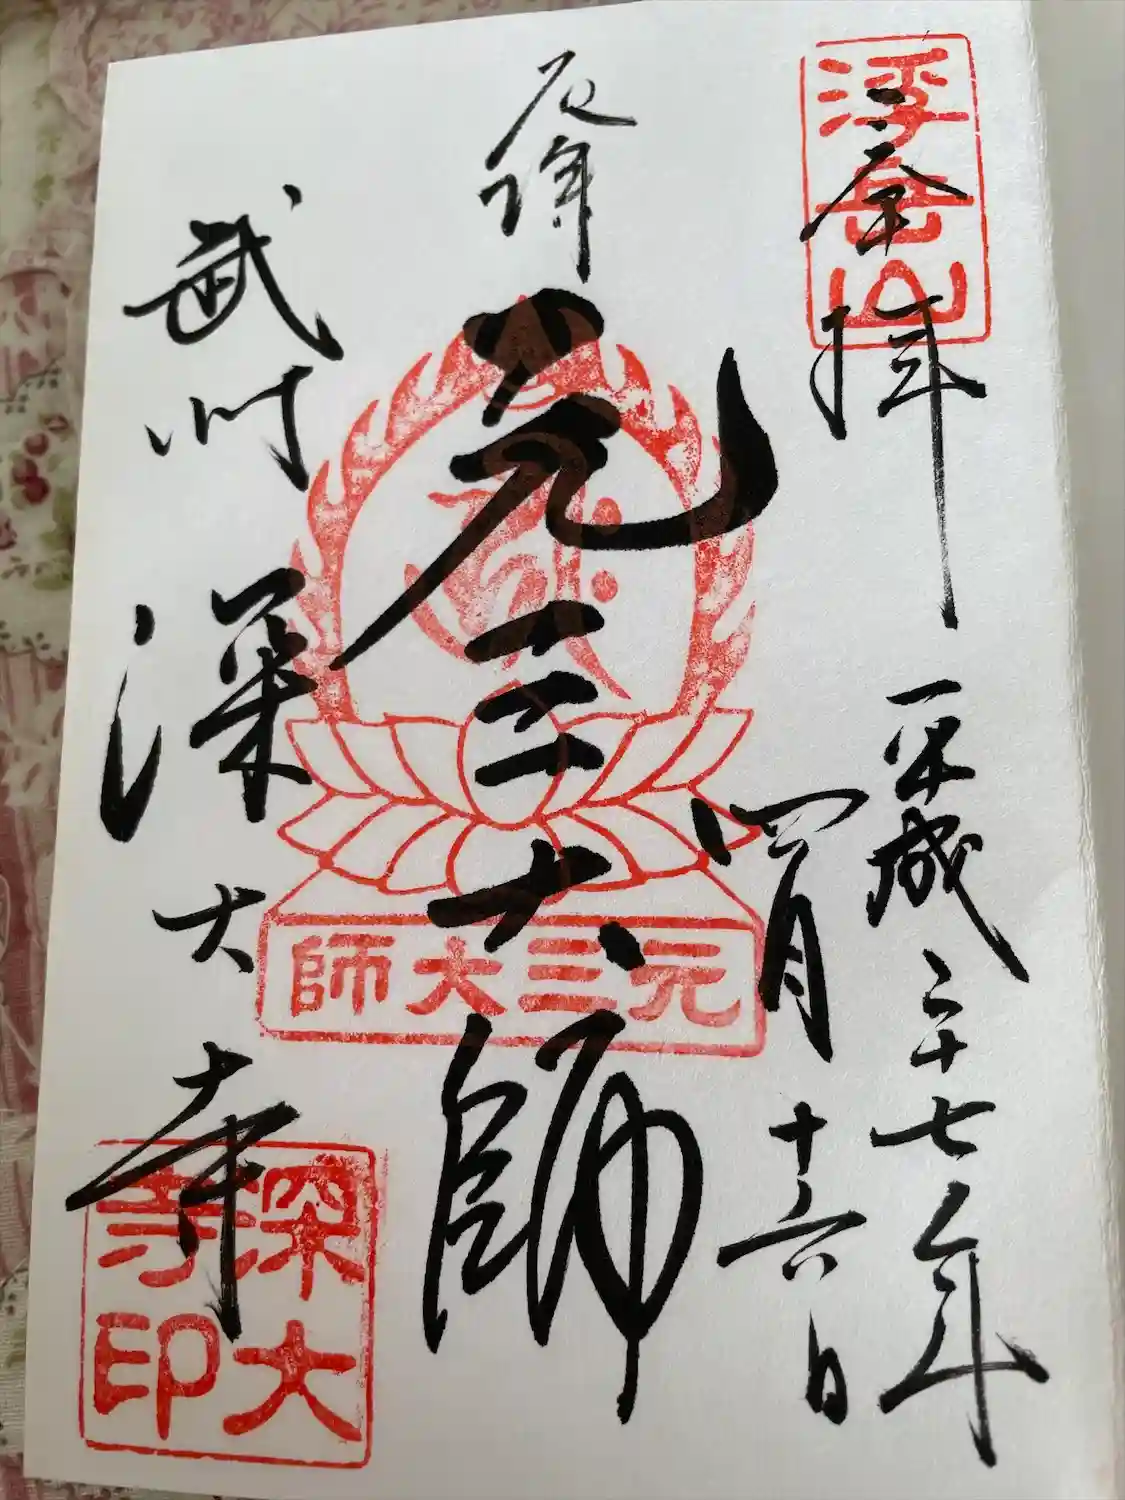 奉拝
平成二十七年
四月十六日
厄除
元三大師
武州
深大寺
浮岳山
元三大師
深大寺印